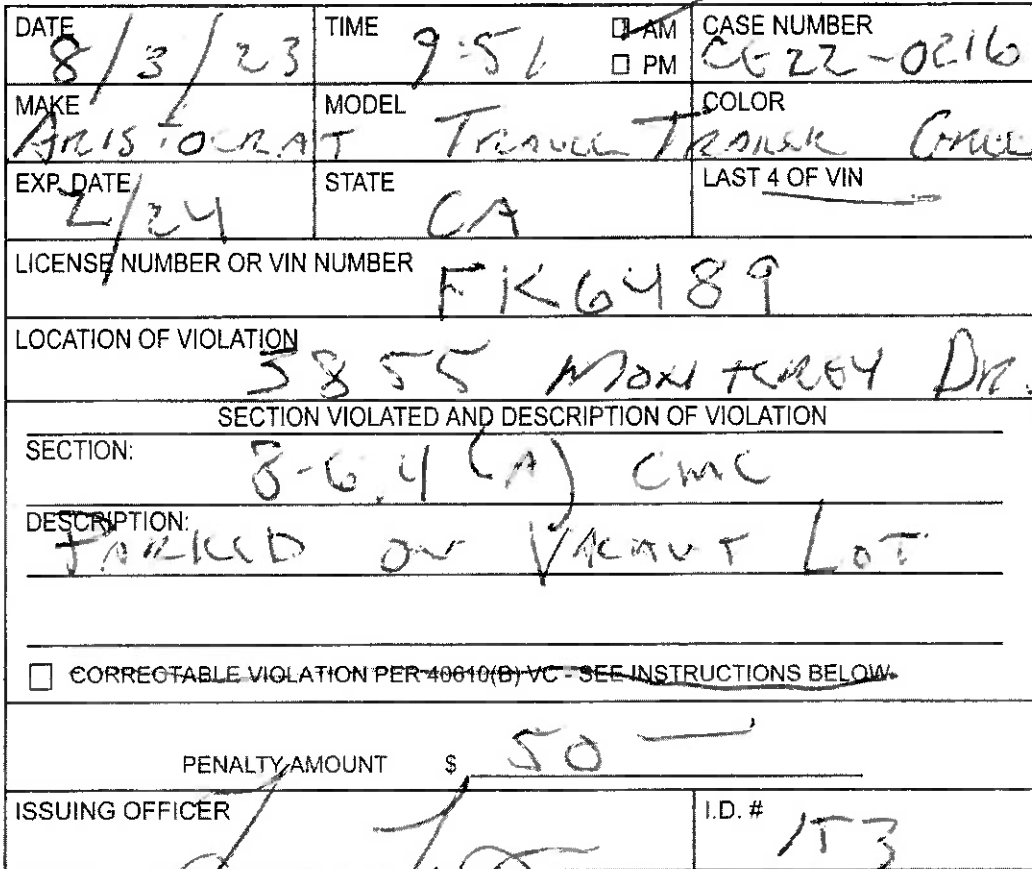 DATE TIME ☑ AM CASE NUMBER
8/3/23 9:51 ☐ PM CE22-0216
MAKE MODEL COLOR
ARISTOCRAT TRAVEL TRAILER
EXP. DATE STATE LAST 4 OF VIN
2/24 CA
LICENSE NUMBER OR VIN NUMBER FK6489
LOCATION OF VIOLATION
3855 MONTEREY DR.
SECTION VIOLATED AND DESCRIPTION OF VIOLATION
SECTION: 8-6.4 (A) CMC
DESCRIPTION:
PARKED ON VACANT LOT
☐ CORRECTABLE VIOLATION PER 40610(B) VC - SEE INSTRUCTIONS BELOW.
PENALTY AMOUNT $ 50 —
ISSUING OFFICER I.D. # 153